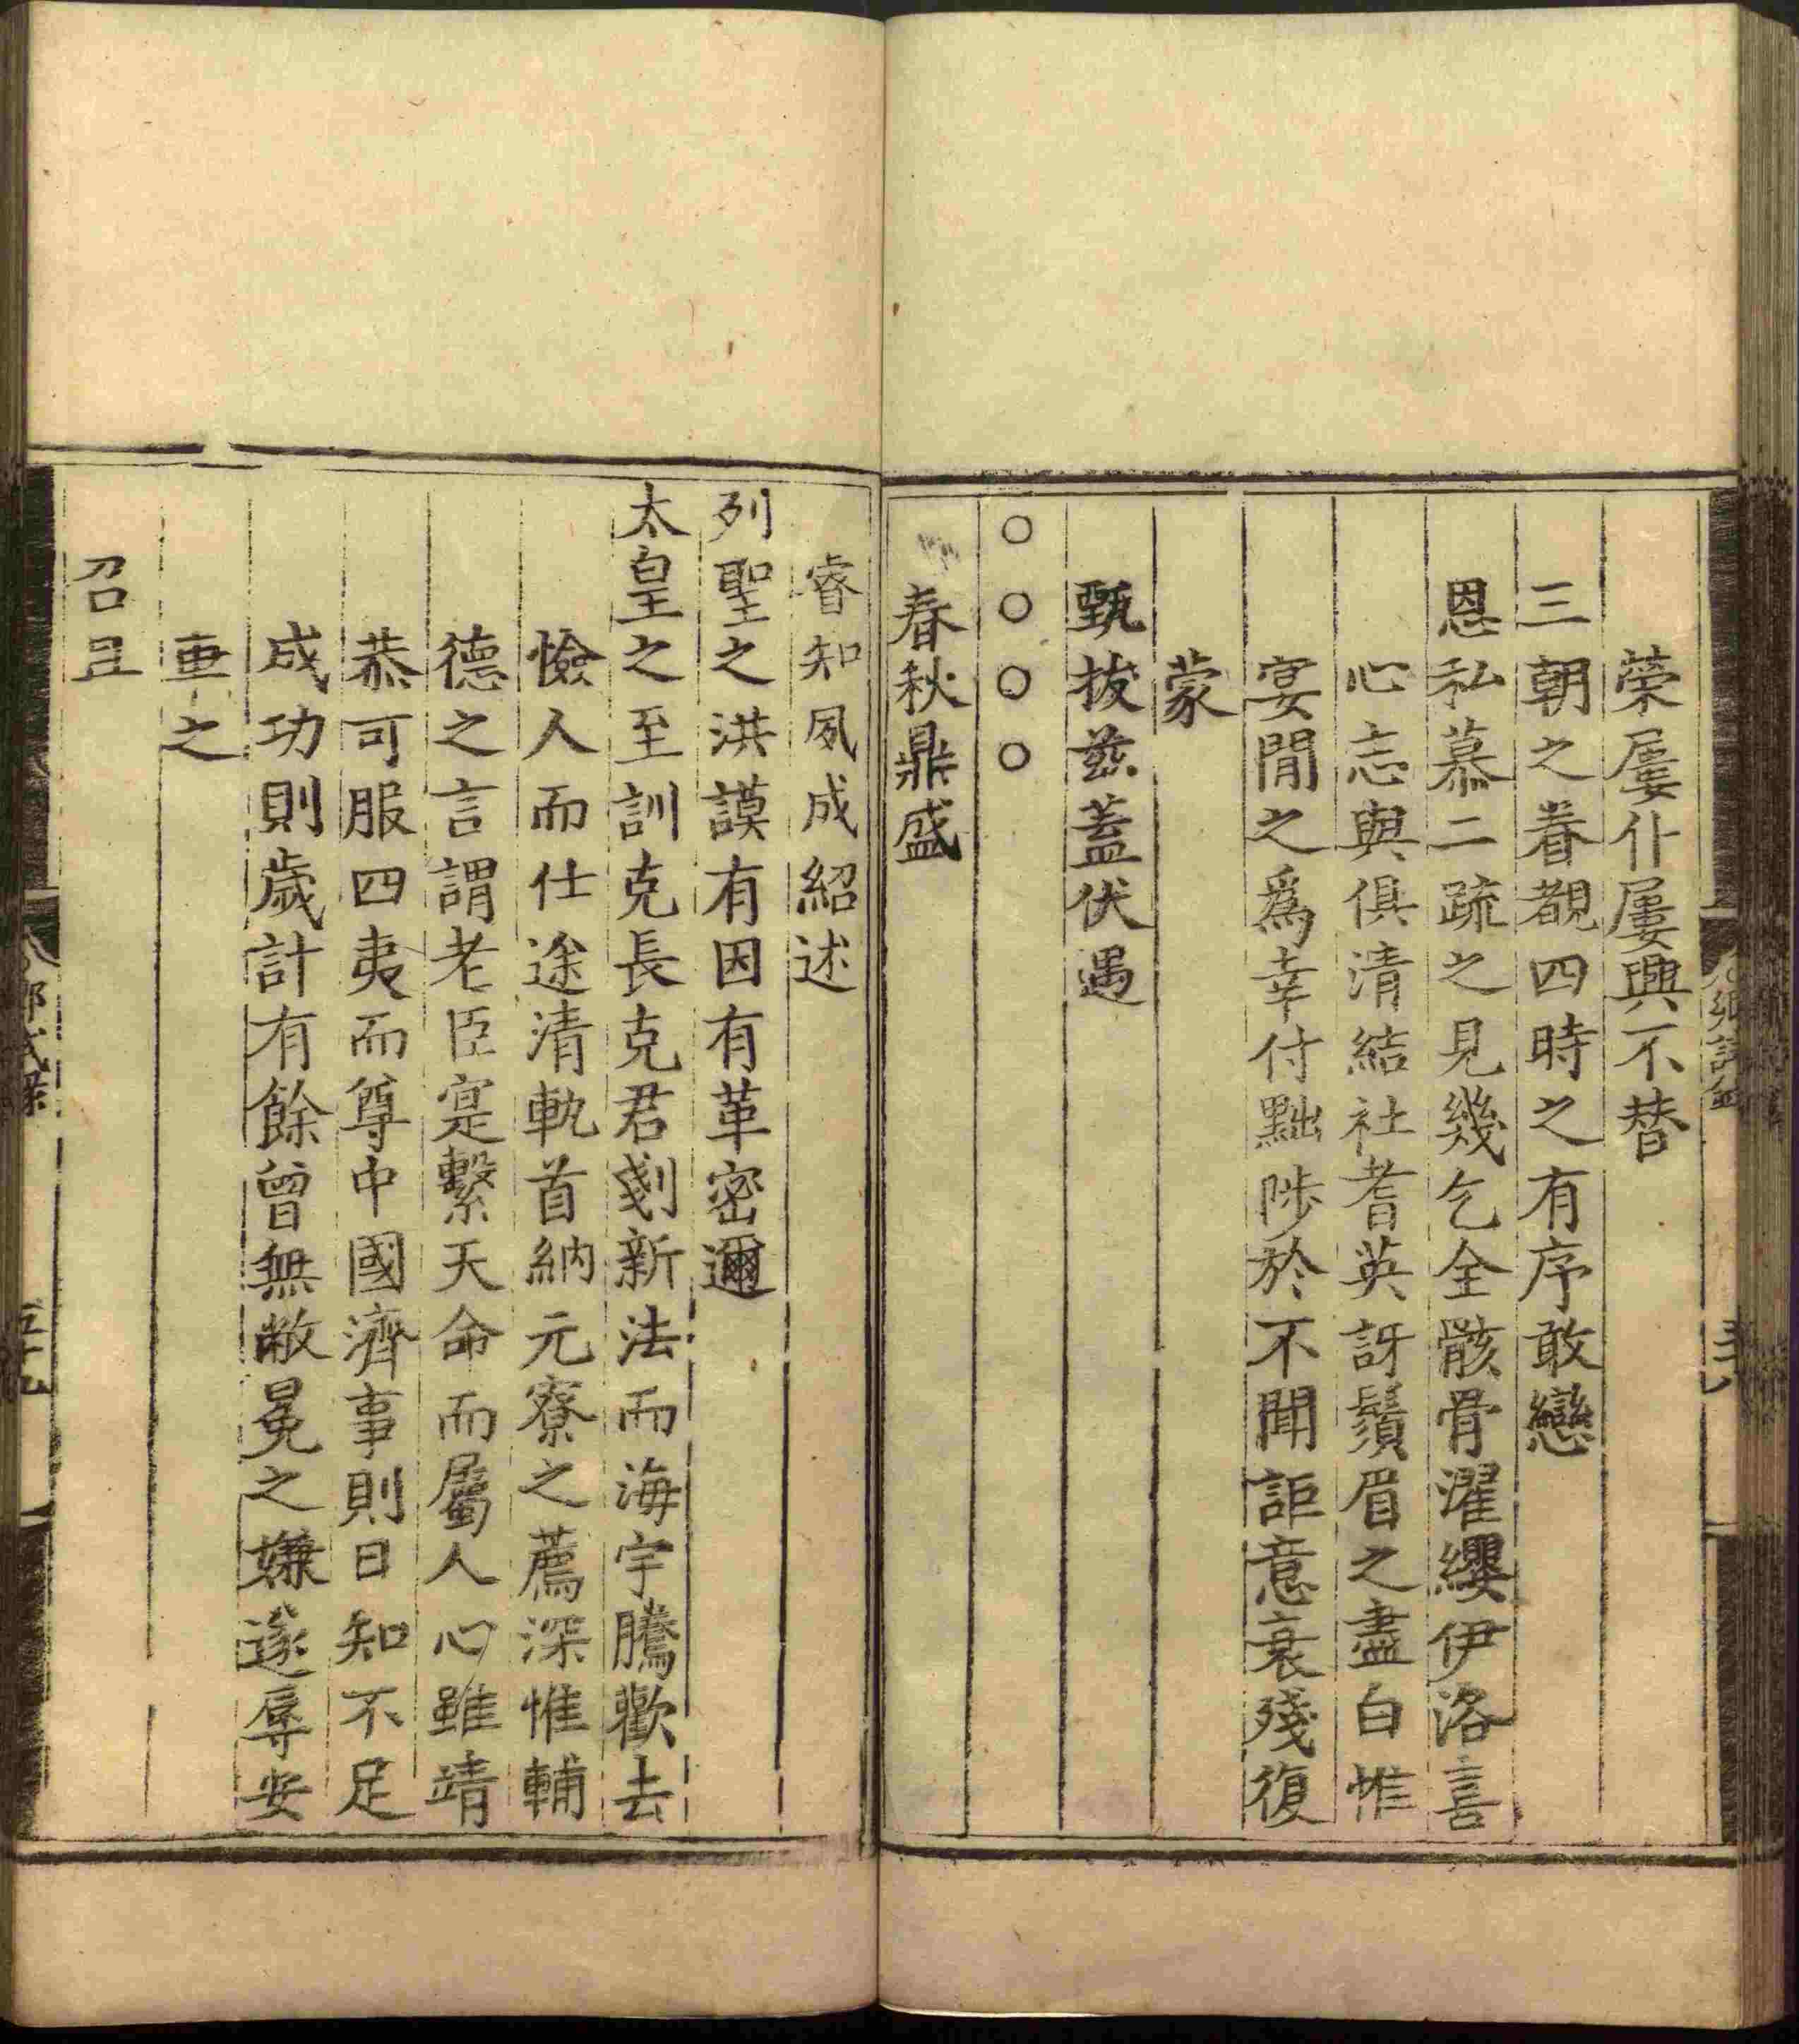 榮屢仆屢興不替
三朝之眷覩四時之有序敢戀
恩私慕二疏之見幾乞全骸骨濯纓伊洛喜
心志與俱清結社耆英訝鬚眉之盡白惟
宴閒之爲幸付黜陟於不聞詎意衰殘復
蒙
甄拔茲蓋伏遇
○○○○
春秋鼎盛
睿知夙成紹述
列聖之洪謨有因有革密邇
太皇之至訓克長克君剗新法而海宇騰歡去
憸人而仕途清軌首納元寮之薦深惟輔
德之言謂老臣寔繫天命而屬人心雖靖
恭可服四夷而尊中國濟事則日知不足
成功則歲計有餘曾無敝冕之嫌遂辱安
車之
召